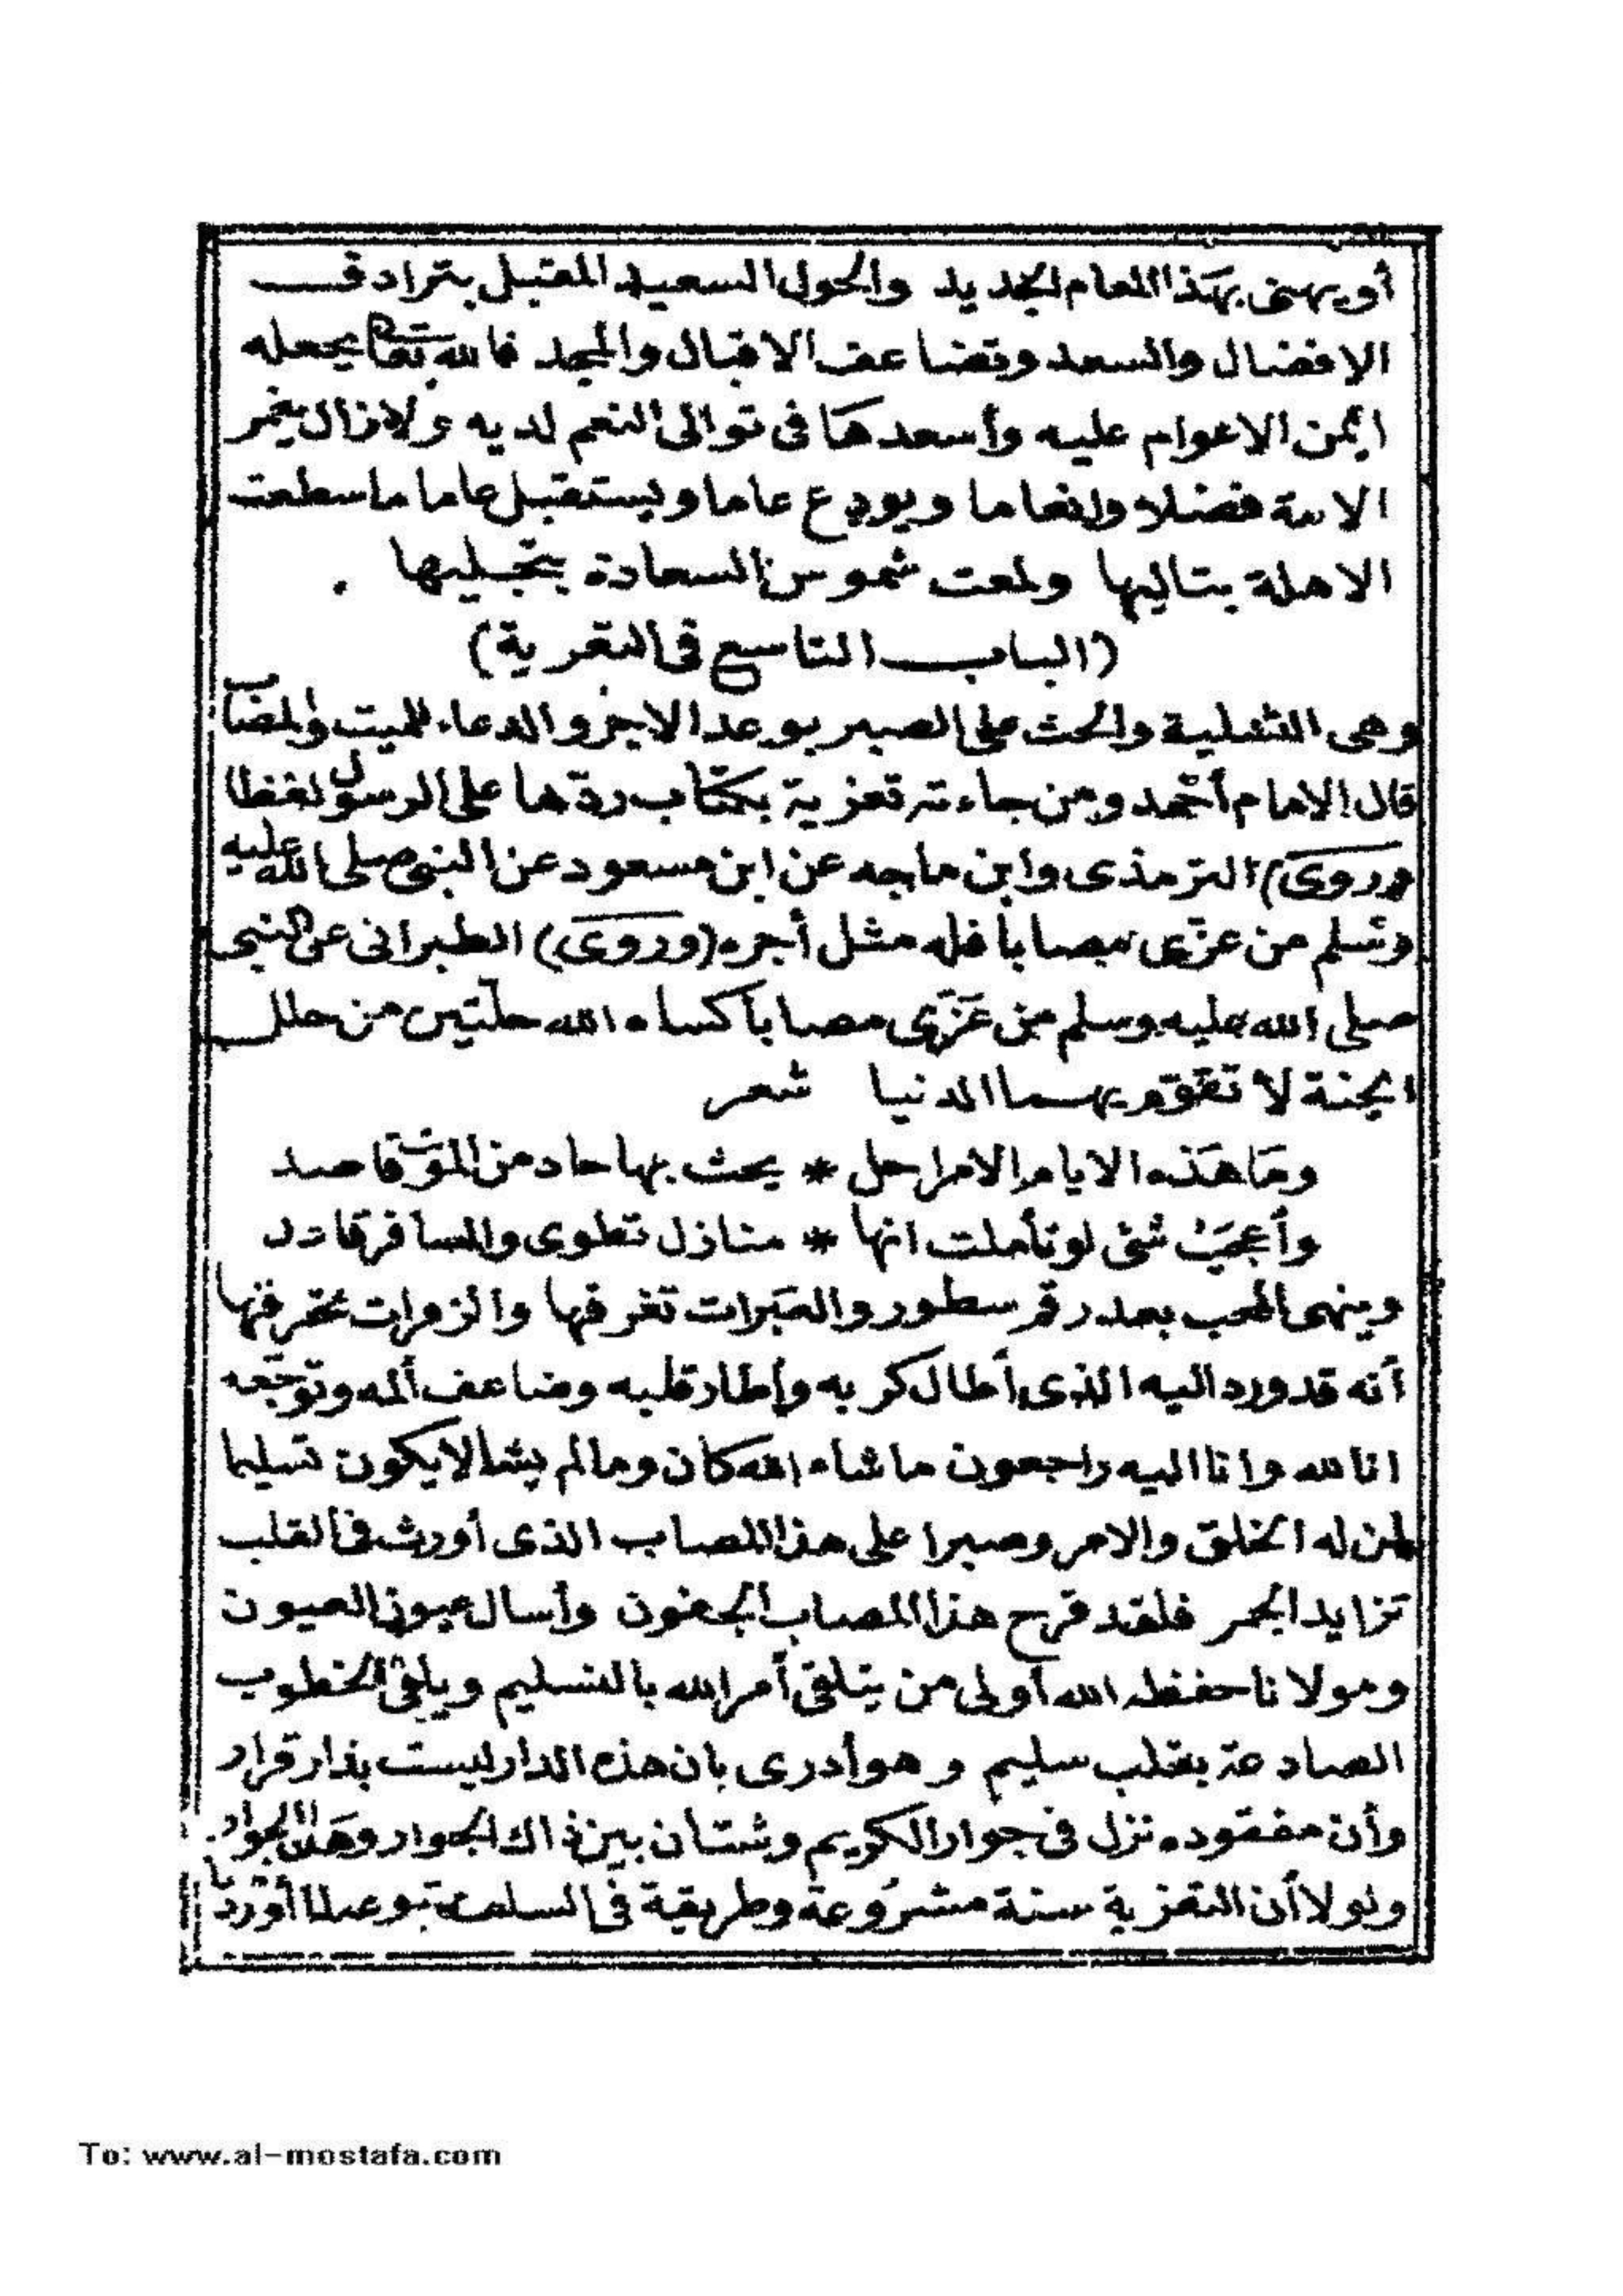 أو يهنى بهذا العام الجديد والحول السعيد المقبل بترادف
الافضال والسعد وتضاعف الاقبال والمجد فالله تعالى يجعله
ايمن الاعوام عليه وأسعدها فى توالى النعم لديه ولا زال يغمر
الامة فضلا وانعاما ويودع عاما ويستقبل عاما ما سطعت
الاهلة بتاليها ولمعت شموس السعادة بتجليها .
(الباب التاسع فى التعزية)
وهى التسلية والحث على الصبر بوعد الاجر والدعاء للميت والمصاب
قال الامام أحمد ومن جاءته تعزية بكتاب ردّها على الرسول لفظا
(وروى) الترمذى وابن ماجه عن ابن مسعود عن النبى صلى الله عليه
وسلم من عزّى مصابا فله مثل أجره (وروى) الطبرانى عن النبى
صلى الله عليه وسلم من عزّى مصابا كساه الله حلتين من حلل
الجنة لا تقوّم بهما الدنيا شعر
وما هذه الايام الا مراحل * يحث بها حاد من الموت قاصد
وأعجب شئ لو تأملت انها * منازل تطوى والمسافر قاعد
وينهى المحب بعد رقم سطور والعبرات تغرقها والزفرات تحرقها
أنه قد ورد اليه الذى أطال كربه وأطار قلبه وضاعف ألمه وتوجّعه
انا لله وانا اليه راجعون ما شاء الله كان وما لم يشا لا يكون تسليما
لمن له الخلق والامر وصبرا على هذا المصاب الذى أورث فى القلب
تزايد الجمر فلقد قرح هذا المصاب الجفون وأسال عيون العيون
ومولانا حفظه الله أولى من يتلقى أمر الله بالتسليم ويلقى الخطوب
الصادعة بقلب سليم وهو أدرى بان هذه الدار ليست بدار قرار
وأن مفقوده نزل فى جوار الكريم وشتان بين ذاك الجوار وهذا الجوار
ولولا أن التعزية سنة مشروعة وطريقة فى السلف متبوعة لما أوردنا
To: www.al-mostafa.com